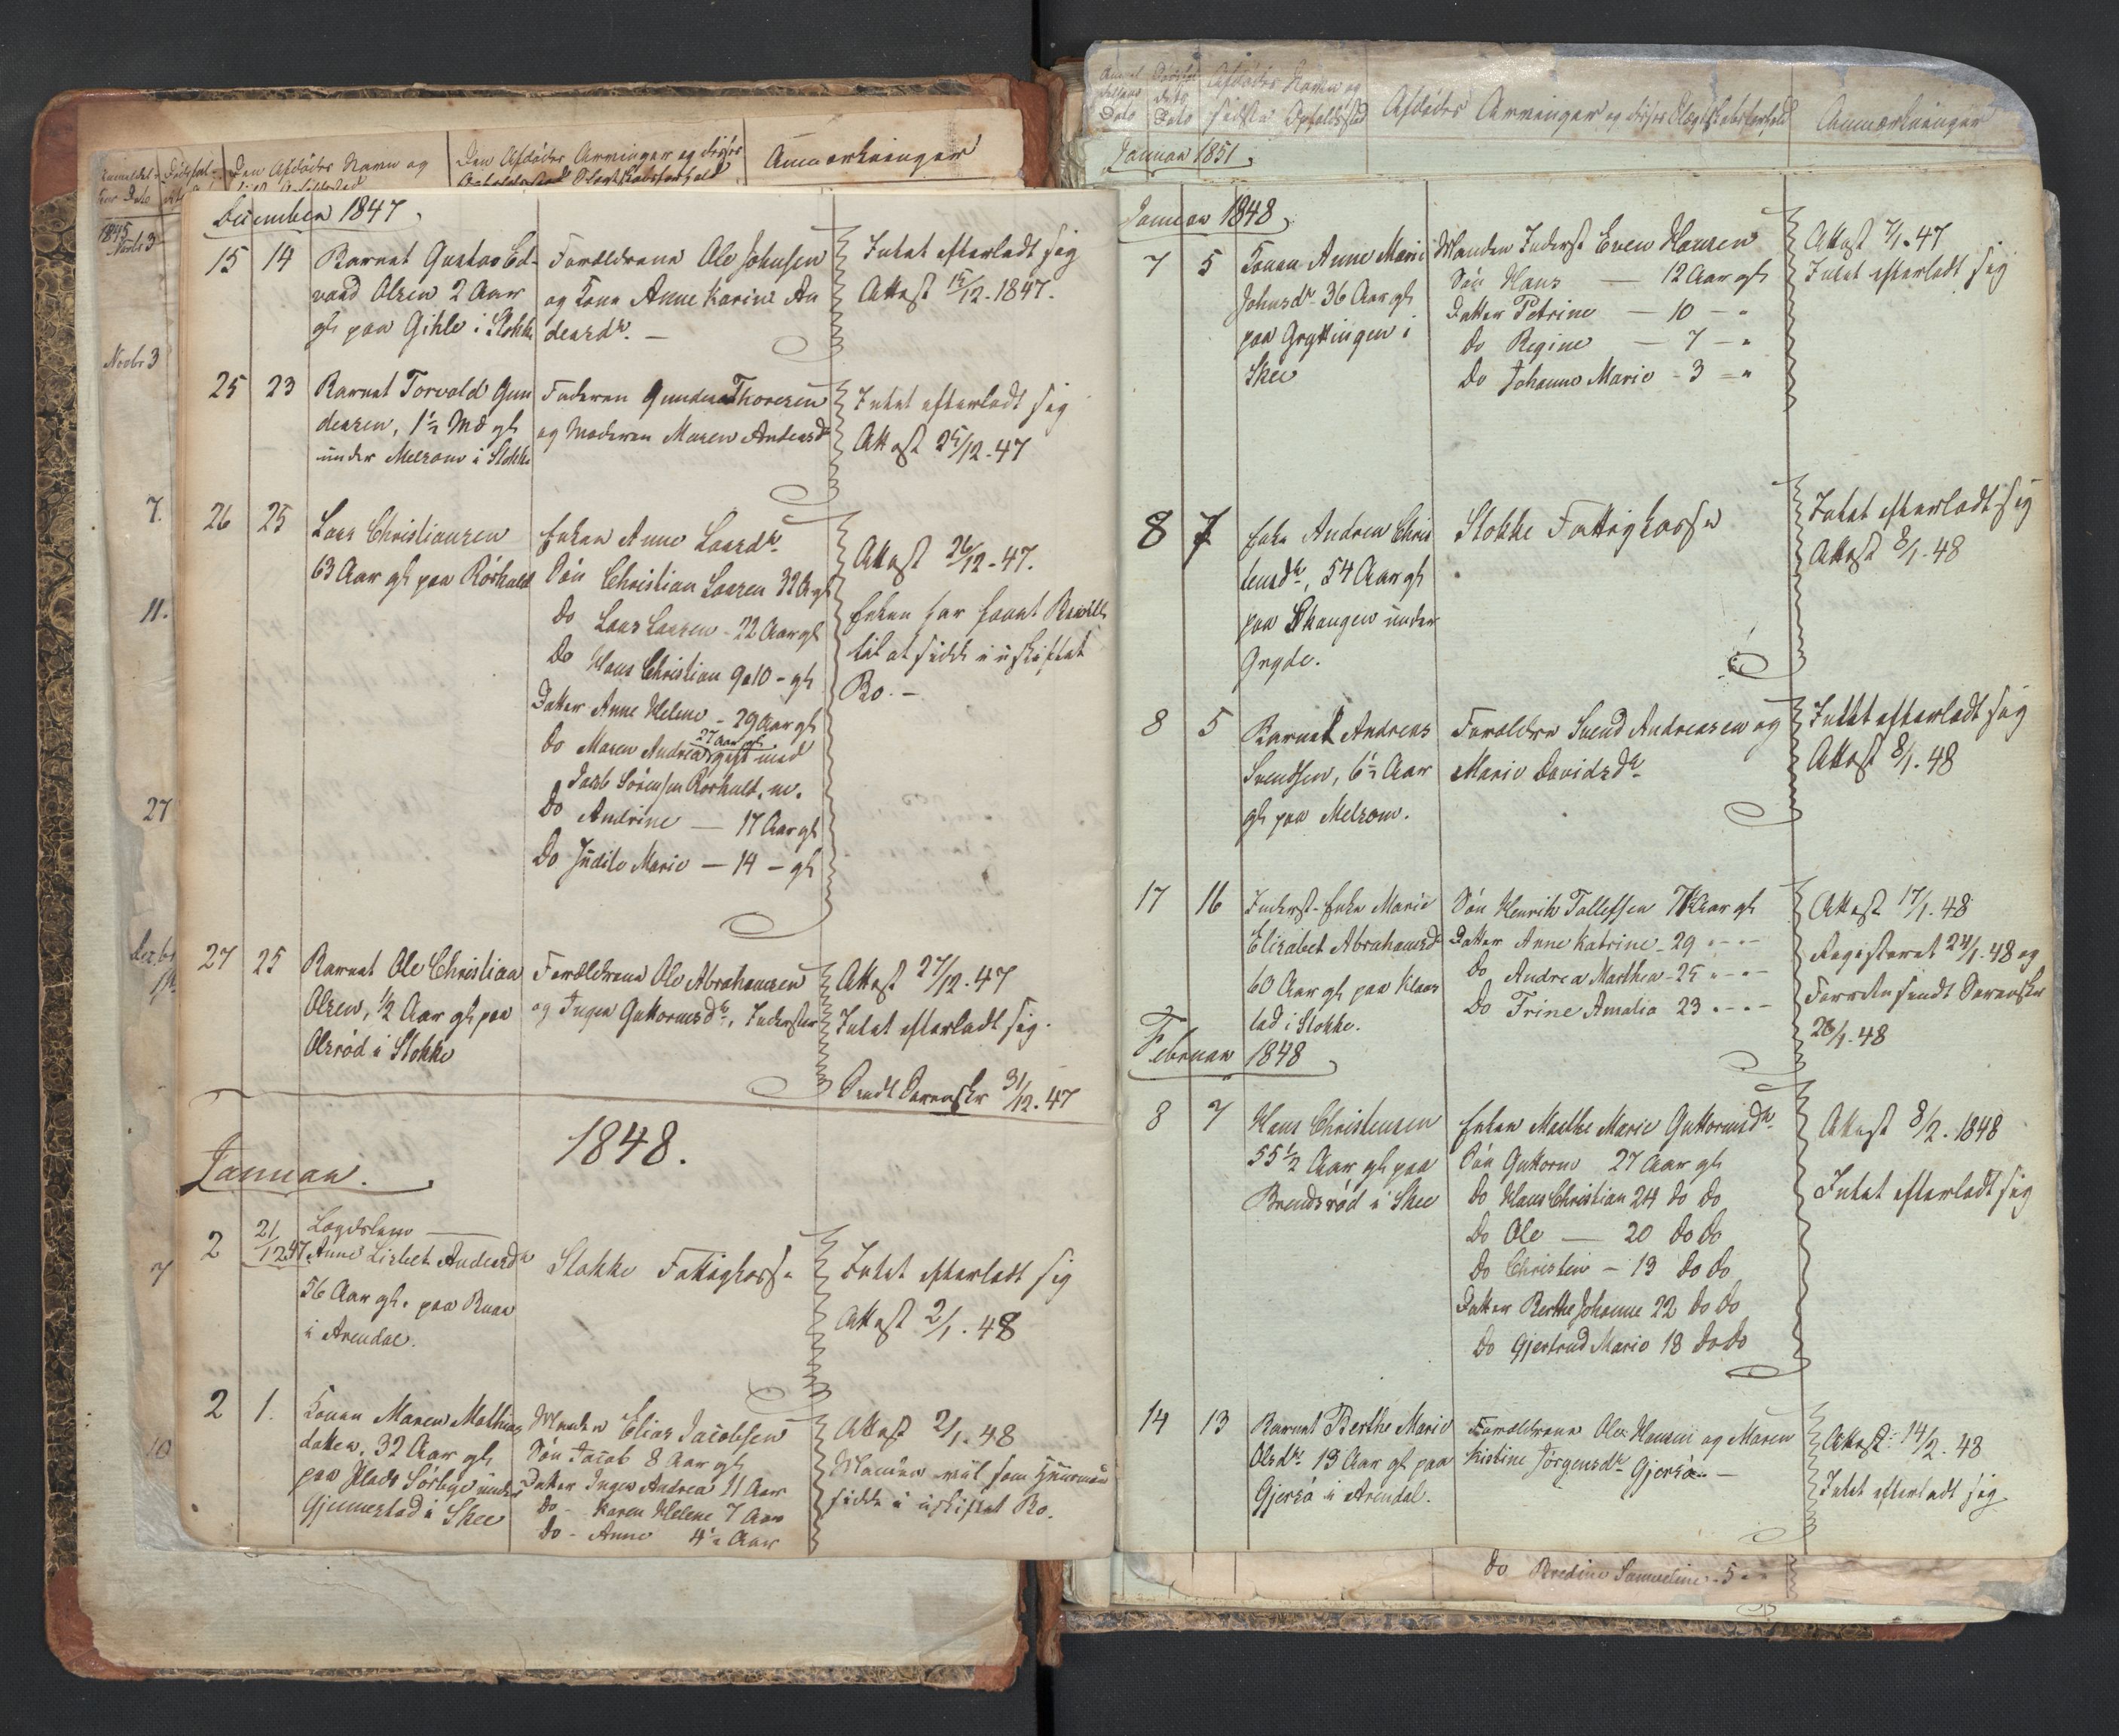 Anmeldel= Dødsfal= Den Afdødes Navn og
Den Afdødes Arvinger og disses
Slegtskabsforhold
Anmærkninger
December 1847,
15 14 Barnet Gustav Ed-
vard Olsen 2 Aar
gl paa Gihle i Stokke
Forældrene Ole Johnsen
og Kone Anne Karine An
dersdr. —
Intet efterladt sig
Attest 15/12. 1847.
25 23 Barnet Torvald Gun
dersen, 1½ Md gl
under Melsom i Stokke
Faderen Gunder Thoresen
og Moderen Maren Andersdr
Intet efterladt sig
Attest 25/12. 47
26 25 Lars Christiansen
63 Aar gl paa Rørkold
Enken Anne Larsdr.
Søn Christian Larsen 32 A gl
Do Lars Larsen - 22 Aar gl
Do Hans Christian 9 a 10 - gl
Datter Anne Helene - 29 Aar gl
27 Aar gl
Do Maren Andrea gift med
Jacob Sørensen Rørkold,
Do Andrine — 17 Aar gl
Do Judite Marie — 14 — gl
Attest 26/12. 47.
Enken har faaet Bevill.
til at sidde i uskiftet
Bo. —
27 25 Barnet Ole Christian
Olsen, ½ Aar gl paa
Olsrød i Stokke
Forældrene Ole Abrahamsen
og Inger Guttormsdr., Inderster
Attest 27/12. 47
Intet efterladt sig.
Sendt Sorenskr 31/12. 47
1848.
Januar.
2 21/12 47 Lægdslem —
Anne Lisbet Andersdr
56 Aar gl. paa Ruae
i Arendal.
Stokke Fattigkasse
Intet efterladt sig
Attest 2/1. 48
2 1. Konen Maren Mathias
datter, 32 Aar gl
paa Plads Sørbye under
Gjennestad i Skee
Manden Elias Jacobsen
Søn Jacob 8 Aar gl
Datter Inger Andrea 11 Aar
Do - Karen Helene 7 Aar
Do - Anne 4½ Aar
Attest 2/1. 48
Manden vil som
sidde i uskiftet Bo.
Afdødes Navn og
sidste Opholdssted
Afdødes Arvinger og disses Slægtskabsforhold
Anmærkninger
Januar 1851,
Januar 1848,
7 5 Konen Anne Marie
Johnsdr 36 Aar gl
paa Gryttingen i
Skee
Manden Inderst Even Hansen
Søn Hans — 12 Aar gl
Datter Petrine — 10 — "
Do Regine — 7 — "
Do Johanne Marie - 3 — "
Attest 7/1. 47
Intet efterladt sig
8 7 Enke Andrea Chris
tensdr, 54 Aar gl
paa Skaugen under
Gryde.
Stokke Fattigkasse
Intet efterladt sig
Attest 8/1. 48
8 5 Barnet Andreas
Svendsen, 6½ Aar
gl paa Melsom.
Forældre Svend Andreasen og
Marie Davidsdr
Intet efterladt sig
Attest 8/1. 48
17 16 Inderst-Enke Marie
Elisabet Abrahamsdr
60 Aar gl paa Klaas
tad i Stokke.
Søn Henrik Tollefsen Aar gl
Datter Anne Katrine - 29 " — —
Do Andrea Marthea - 25 " — —
Do Trine Amalia 23 " — —
Attest 17/1. 48
Registeret 24/1. 48 og
Forretn sendt Sorenskr
26/1. 48
Februar 1848
8 7 Hans Christensen
55½ Aar gl paa
Brendsrød i Skee
Enken Marthe Marie Guttormsdr
Søn Guttorm 27 Aar gl
Do Hans Christian 24 do do
Do Ole — 20 do do
Do Christen — 13 do do
Datter Berthe Johanne 22 do do
Do Gjertrud Marie 18 do do
Attest 8/2. 1848
Intet efterladt sig
14 13 Barnet Berthe Marie
Olsdr 13 Aar gl paa
Gjersø i Arendal.
Forældrene Ole Hansen og Maren
Kistine Jørgensdr Gjersø. —
Attest: 14/2. 48
Intet efterladt sig
Do Bredine Samueline - 5 "